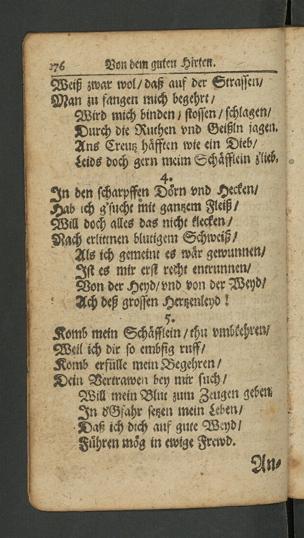 276 Von dem guten Hirten.
Weiß zwar wol/ daß auf der Strassen/
Man zu fangen mich begehrt/
Wird mich binden/ stossen/ schlagen/
Durch die Ruthen vnd Geißln jagen.
Ans Creutz häfften wie ein Dieb/
Leids doch gern meim Schäfflein z'lieb.
4.
In den scharpffen Dörn vnd Hecken/
Hab ich g'sucht mit gantzem Fleiß/
Will doch alles das nicht klecken/
Nach erlittnen blutigem Schweiß/
Als ich gemeint es wär gewunnen/
Ist es mir erst recht entrunnen/
Von der Heyd/ vnd von der Weyd/
Ach deß grossen Hertzenleyd!
5.
Komb mein Schäfflein/ thu vmbkehren/
Weil ich dir so embsig ruff/
Komb erfülle mein Begehren/
Dein Vertrawen bey mir such/
Will mein Blut zum Zeugen geben
In d'Gfahr setzen mein Leben/
Daß ich dich auf gute Weyd/
Führen mög in ewige Frewd.
An-